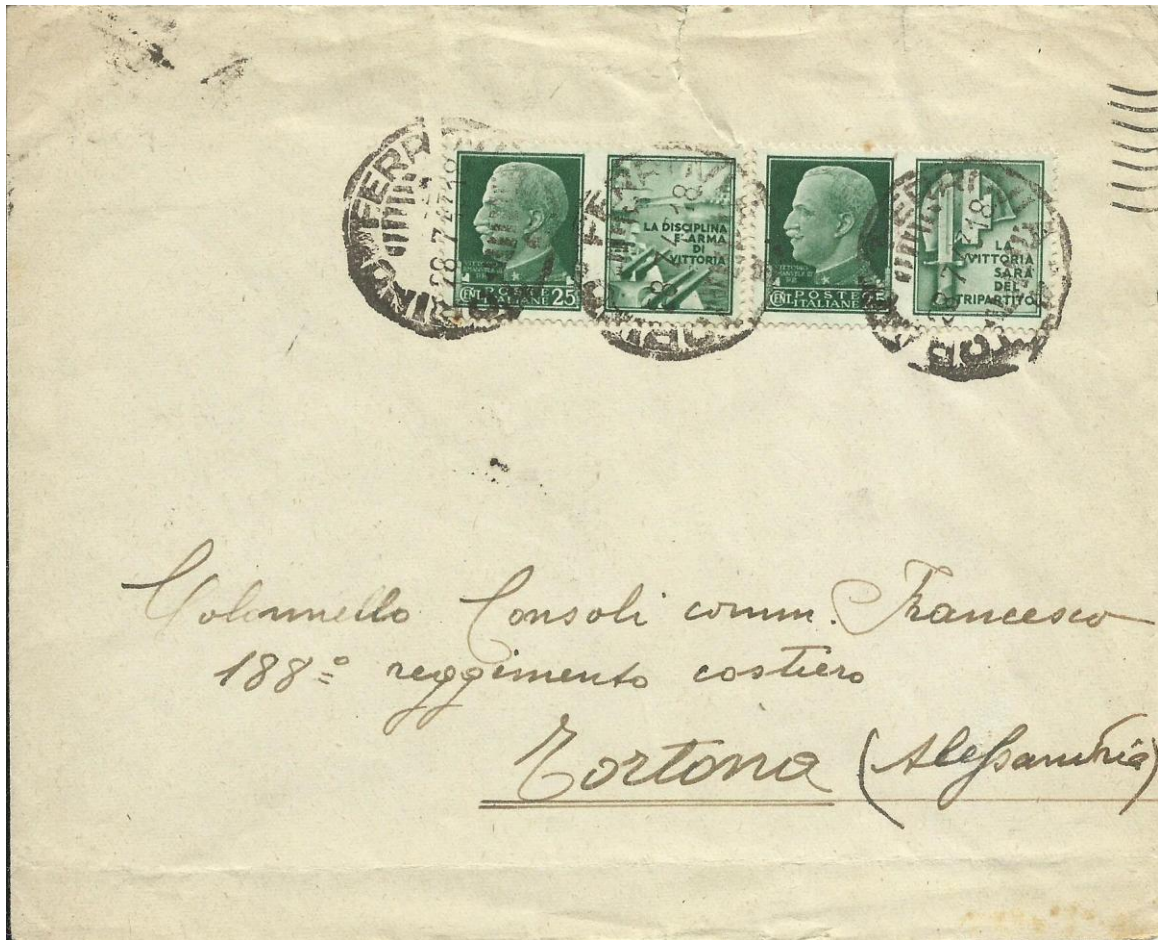 VITTORIO EMANUELE III
CENT. POSTE ITALIANE 25
LA DISCIPLINA
E' ARMA
DI
VITTORIA
CENT. POSTE ITALIANE 25
LA
VITTORIA
SARÀ
DEL
TRIPARTITO
TORINO FERROVIA
28 7
18
Colonnello Consoli comm. Francesco
188º reggimento costiero
Tortona (Alessandria)